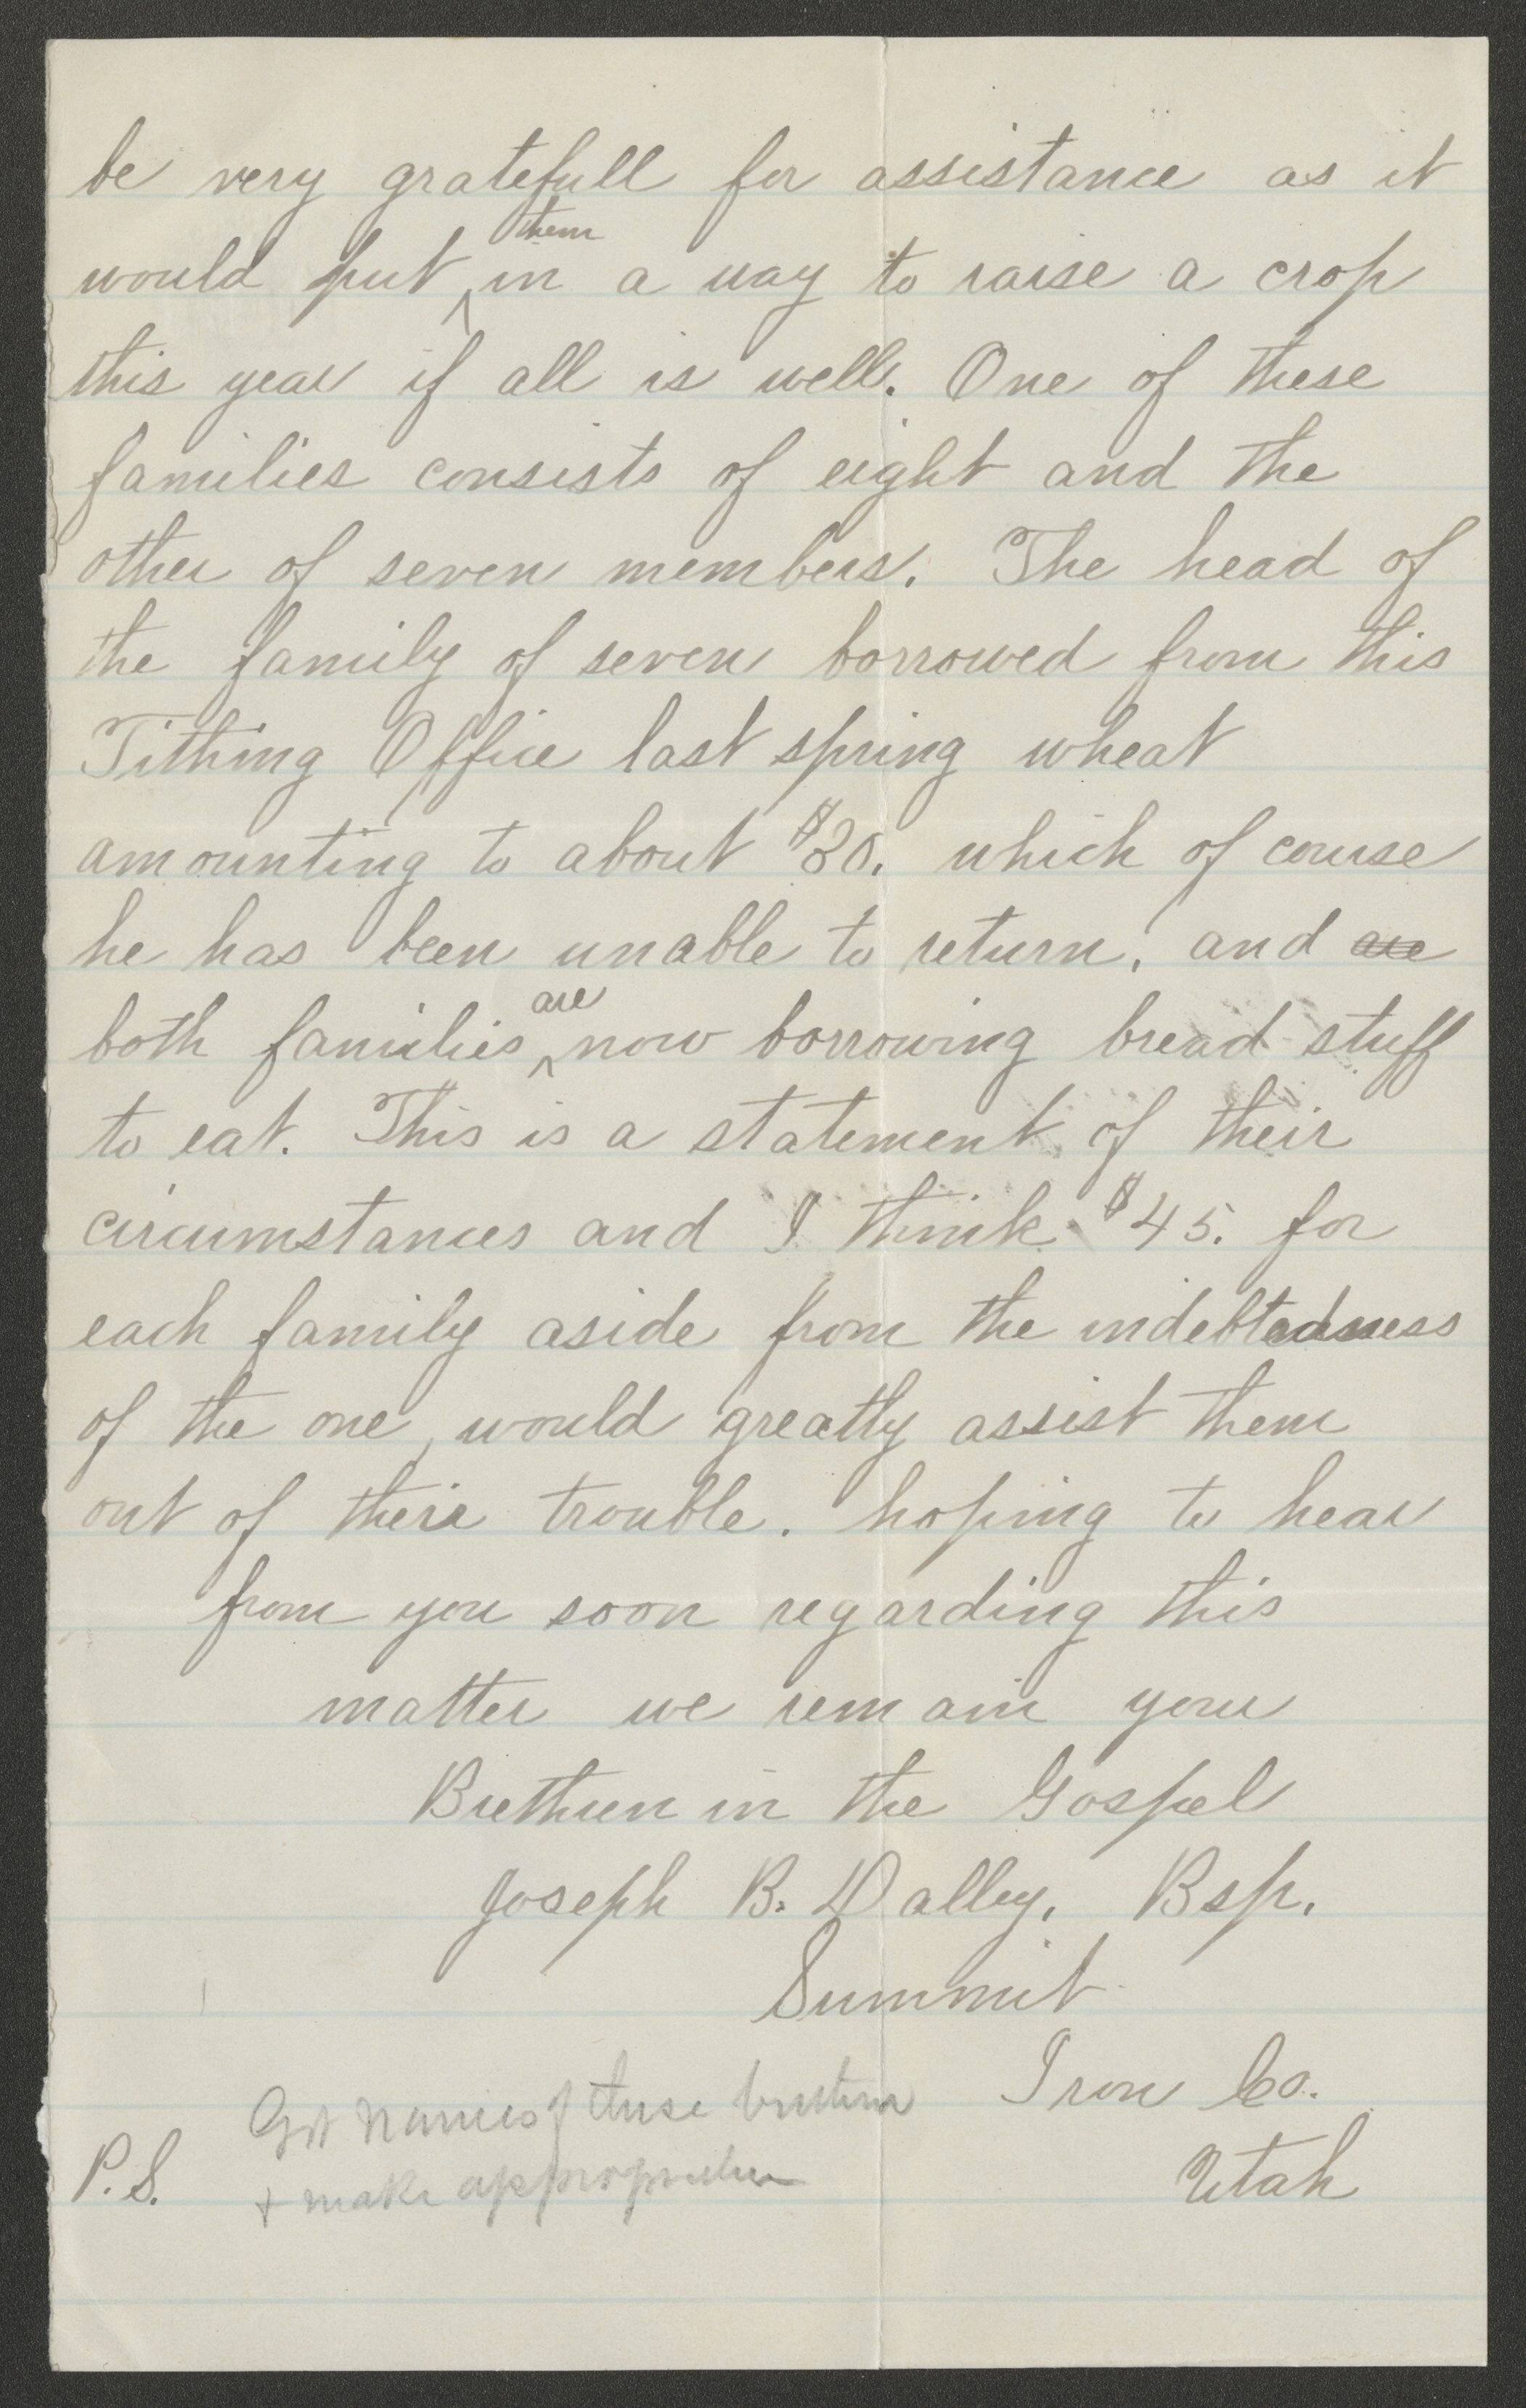 be very gratefull for assistance as it
would put them in a way to raise a crop
this year if all is well. One of these
families consists of eight and the
other of seven members. The head of
the family of seven borrowed from this
Tithing Office last spring wheat
amounting to about $30. which of course
he has been unable to return, and are
both families are now borrowing bread stuff
to eat. This is a statement of their
circumstances and I think $45. for
each family aside from the indebtedness
of the one, would greatly assist them
out of their trouble. hoping to hear
from you soon regarding this
matter we remain your
Brethren in the Gospel
Joseph B. Dalley, Bsp.
Summit
Iron Co.
Utah
P.S.
Get names of these brethren
+ make appropriation